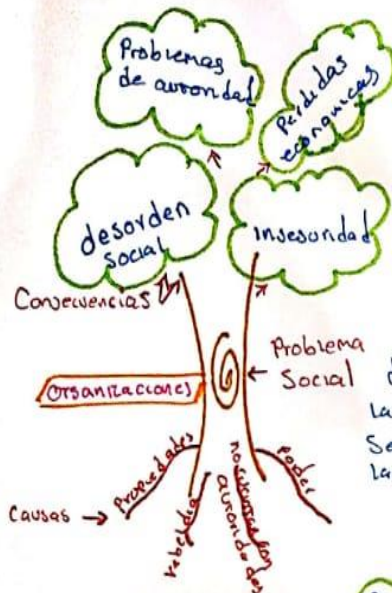 Problemas
de autoridad
Perdidas
economicas
desorden
social
inseguridad
Consecuencias
Problema
Social
Organizaciones
Causas
Propiedades
rebeldia
autoridades
Poder
La
Se
La